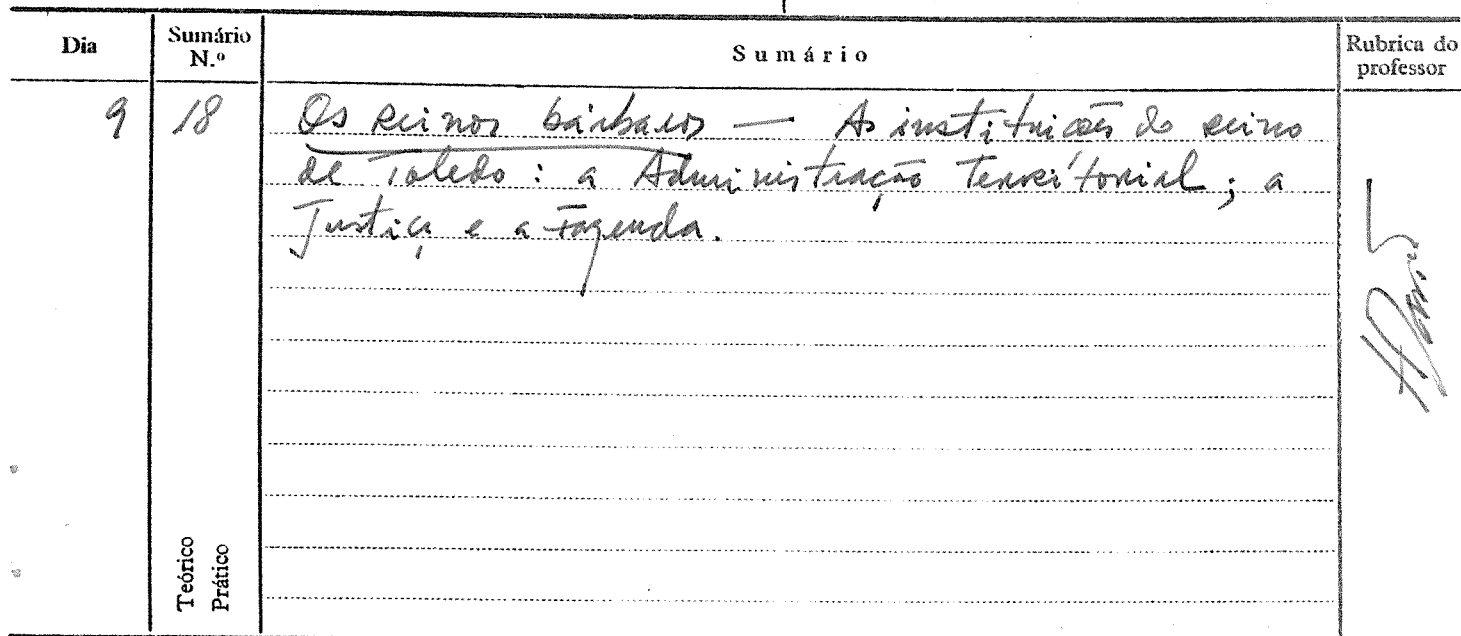 Dia
Sumário
N.º
Sumário
Rubrica do
professor
9 18 Os reinos bárbaros — As instituições do reino
de Toledo : a Administração Territorial ; a
Justiça e a Fazenda.
Teórico
Prático